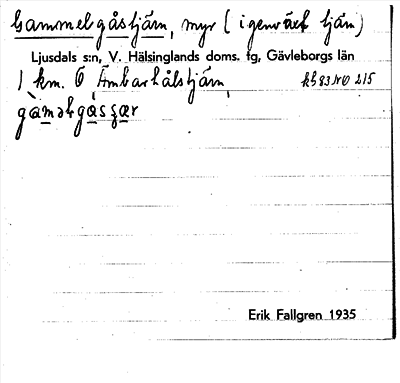 Gammelgåstjärn, myr (igenväxt tjärn)
Ljusdals s:n, V. Hälsinglands doms. fg, Gävleborgs län
1 km. Ö Ämbarhålstjärn,
kb 83 NO 215
Erik Fallgren 1935